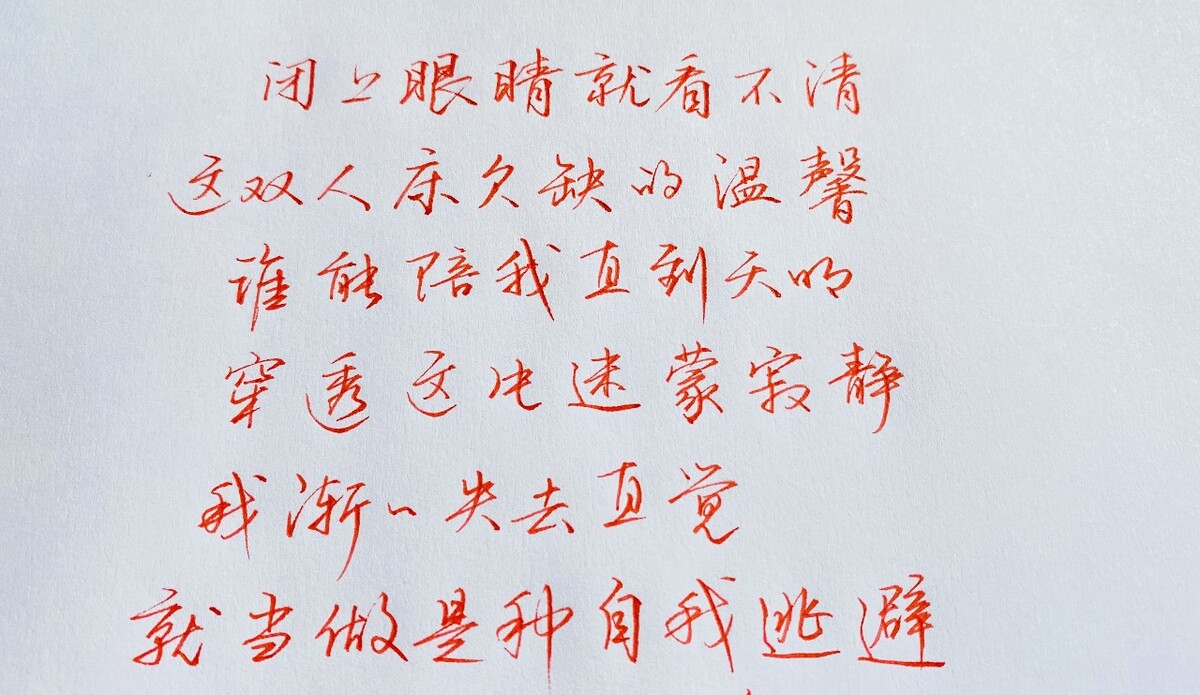 闭上眼睛就看不清
这双人床欠缺的温馨
谁能陪我直到天明
穿透这片迷蒙寂静
我渐渐失去直觉
就当做是种自我逃避